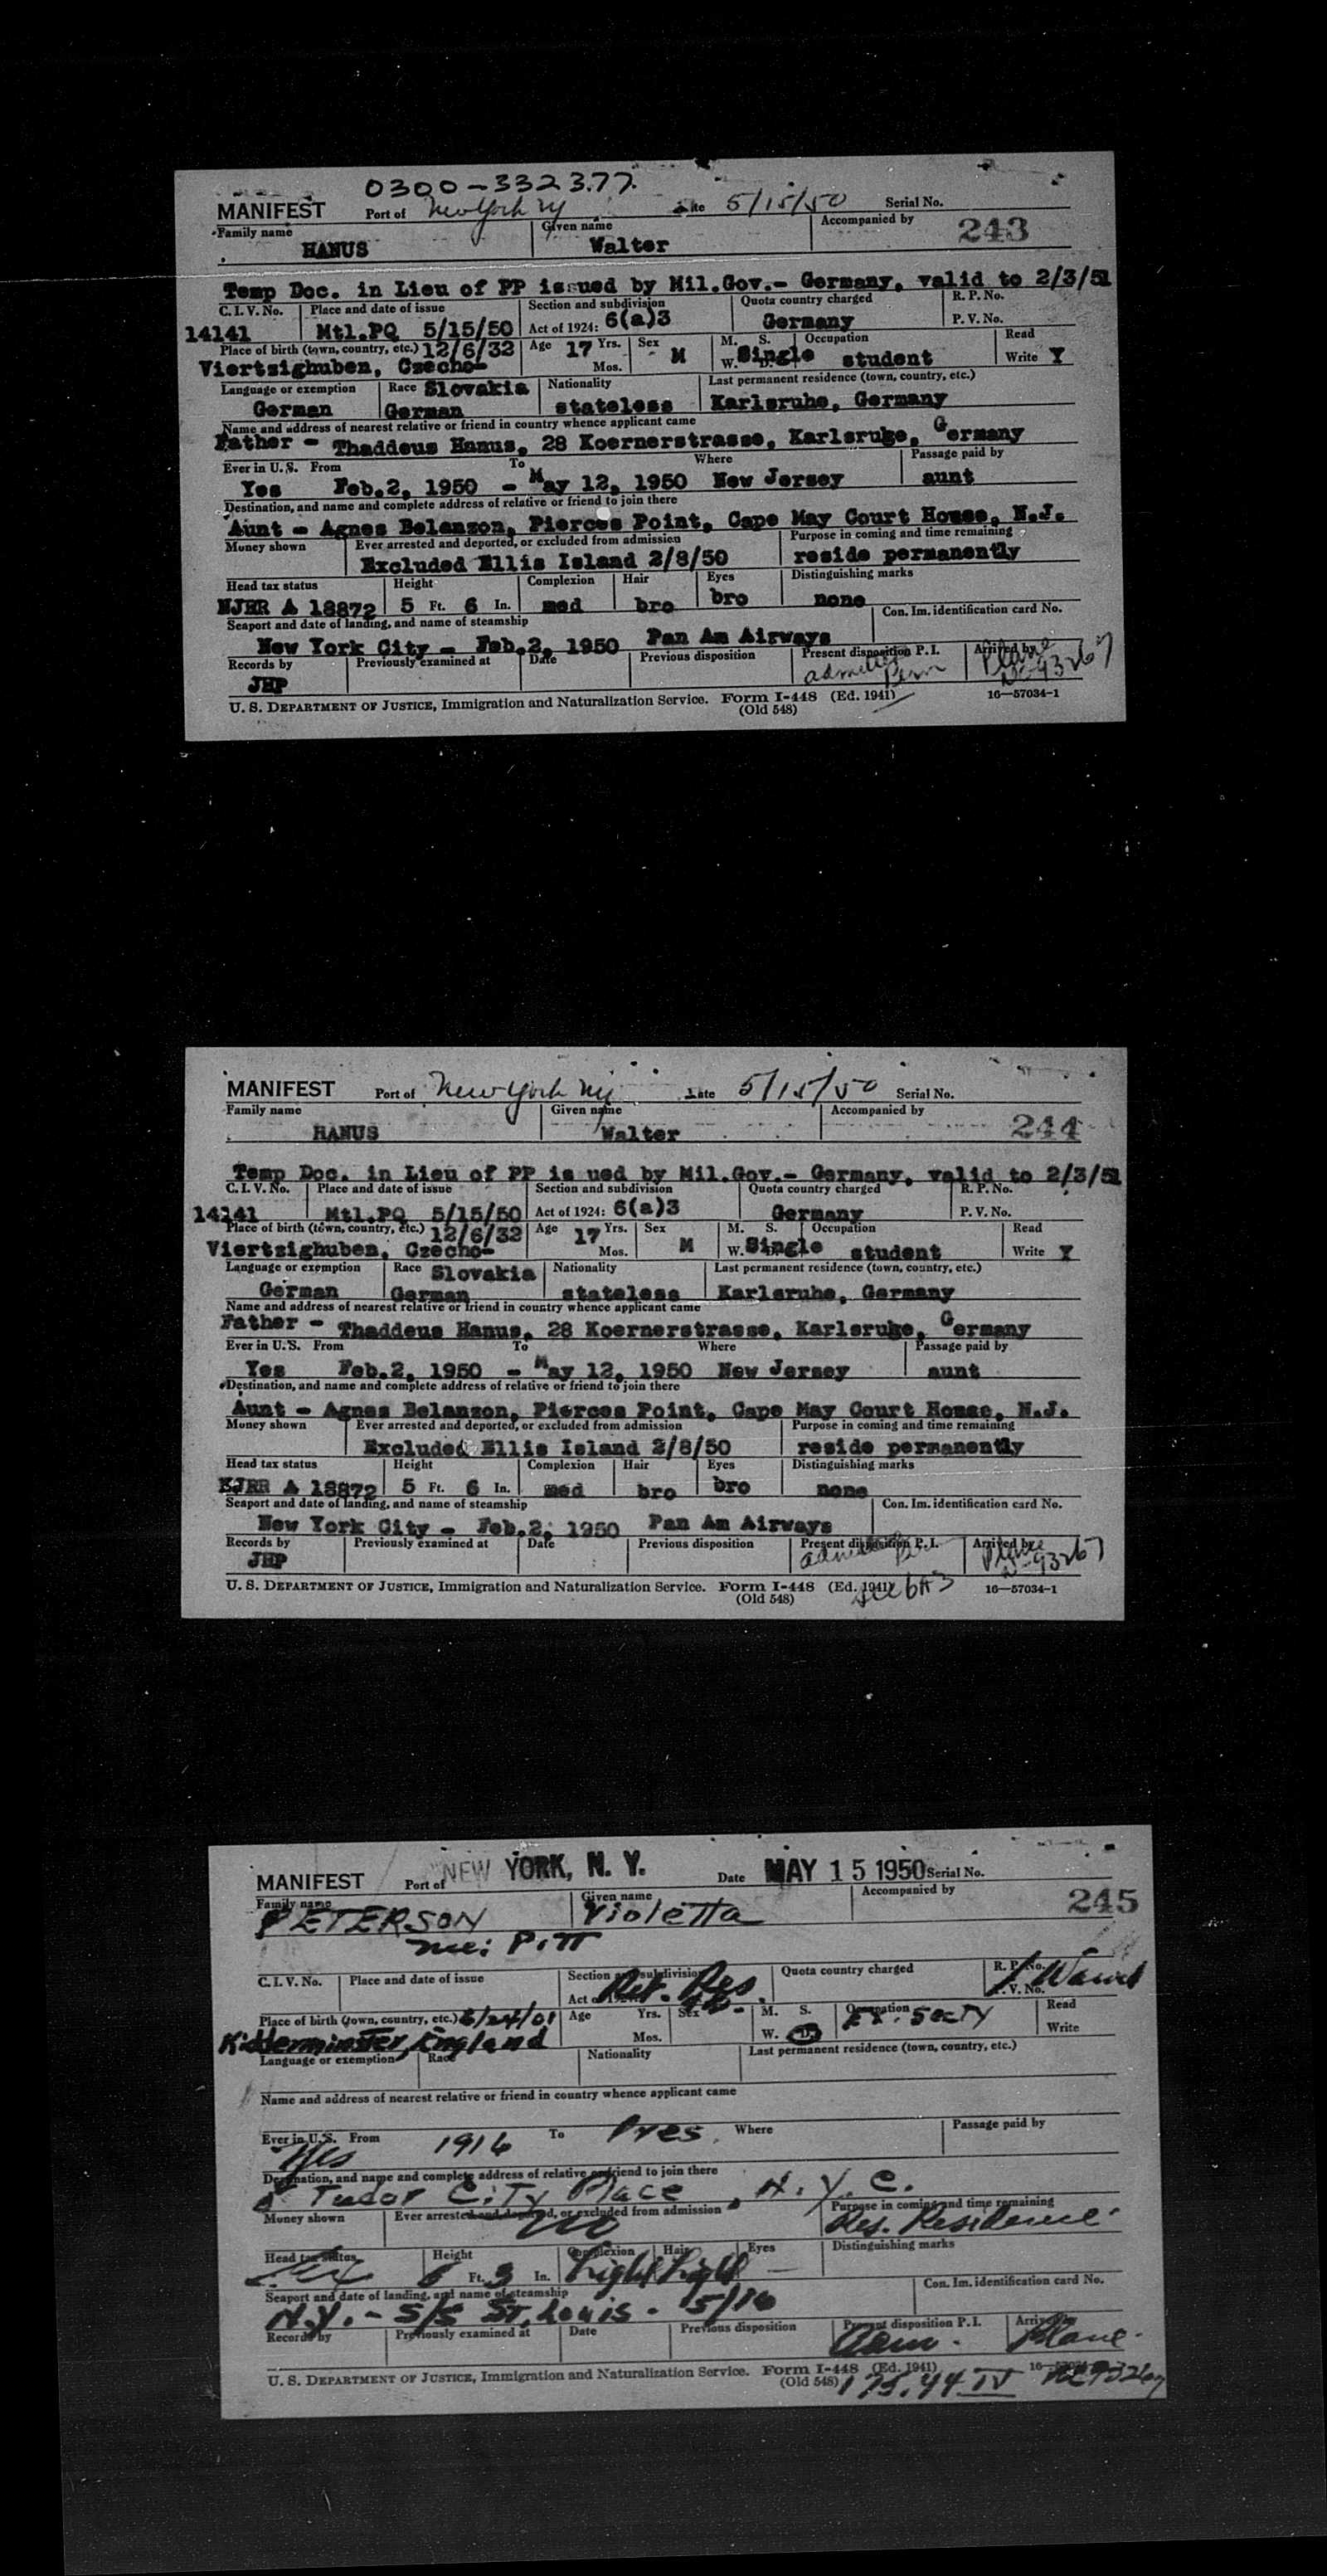 0300-332377.
MANIFEST Port of New York NY Date 5/15/50 Serial No.
Family name Given name Accompanied by 243
HANUS Walter
Temp Doc. in Lieu of PP issued by Mil.Gov.- Germany, valid to 2/3/51
C. I. V. No. Place and date of issue Section and subdivision Quota country charged R. P. No.
14141 Mtl.PQ 5/15/50 Act of 1924: 6(a)3 Germany P. V. No.
Place of birth (town, country, etc.) 12/6/32 Age 17 Yrs. Sex M. S. Occupation Read
Viertzighuben, Czecho- Mos. M W. D. Single student Write Y
Language or exemption Race Slovakia Nationality Last permanent residence (town, country, etc.)
German German stateless Karlsruhe, Germany
Name and address of nearest relative or friend in country whence applicant came
Father - Thaddeus Hanus, 28 Koernerstrasse, Karlsruhe, Germany
Ever in U.S. From To Where Passage paid by
Yes Feb.2, 1950 - May 12, 1950 New Jersey aunt
Destination, and name and complete address of relative or friend to join there
Aunt - Agnes Belanzon, Pierces Point, Cape May Court House, N.J.
Money shown Ever arrested and deported, or excluded from admission Purpose in coming and time remaining
Excluded Ellis Island 2/8/50 reside permanently
Head tax status Height Complexion Hair Eyes Distinguishing marks
NJRR A 18872 5 Ft. 6 In. med bro bro none Con. Im. identification card No.
Seaport and date of landing, and name of steamship
New York City - Feb.2, 1950 Pan Am Airways
Records by Previously examined at Date Previous disposition Present disposition P. I. Arrived by
JHP admitted Perm Plane N-93267
U. S. DEPARTMENT OF JUSTICE, Immigration and Naturalization Service. Form I-448 (Ed. 1941) 16—57034-1
(Old 548)
MANIFEST Port of New York NY Date 5/15/50 Serial No.
Family name Given name Accompanied by
HANUS Walter 244
Temp Doc. in Lieu of PP is ued by Mil.Gov.- Germany, valid to 2/3/51
C. I. V. No. Place and date of issue Section and subdivision Quota country charged R. P. No.
14141 Mtl.PQ 5/15/50 Act of 1924: 6(a)3 Germany P. V. No.
Place of birth (town, country, etc.) 12/6/32 Age 17 Yrs. Sex M. S. Occupation Read
Viertzighuben, Czecho- Mos. M W. Single student Write Y
Language or exemption Race Slovakia Nationality Last permanent residence (town, country, etc.)
German German stateless Karlsruhe, Germany
Name and address of nearest relative or friend in country whence applicant came
Father - Thaddeus Hanus, 28 Koernerstrasse, Karlsruhe, Germany
Ever in U.S. From To Where Passage paid by
Yes Feb.2, 1950 - May 12, 1950 New Jersey aunt
Destination, and name and complete address of relative or friend to join there
Aunt - Agnes Belanzon, Pierces Point, Cape May Court House, N.J.
Money shown Ever arrested and deported, or excluded from admission Purpose in coming and time remaining
Excluded Ellis Island 2/8/50 reside permanently
Head tax status Height Complexion Hair Eyes Distinguishing marks
NJRR A 18872 5 Ft. 6 In. med bro bro none
Seaport and date of landing, and name of steamship Con. Im. identification card No.
New York City - Feb.2, 1950 Pan Am Airways
Records by Previously examined at Date Previous disposition Present disposition P. I. Arrived by
JHP Plane N-93267
U. S. DEPARTMENT OF JUSTICE, Immigration and Naturalization Service. Form I-448 (Ed. 1941) 6A3 16—57034-1
(Old 548)
MANIFEST Port of NEW YORK, N. Y. Date MAY 15 1950 Serial No.
Family name Given name Accompanied by 245
PETERSON Violetta
nee: PITT
C. I. V. No. Place and date of issue Section and subdivision Quota country charged R. P. No.
Act of 1924: Ret. Res P. V. No.
Place of birth (town, country, etc.) 6/24/01 Age Yrs. Sex M. S. Occupation Ex. Secty Read
Kidderminster, England Mos. W. D. Write
Language or exemption Race Nationality Last permanent residence (town, country, etc.)
Name and address of nearest relative or friend in country whence applicant came
Ever in U.S. From 1916 To Pres. Where Passage paid by
Yes
Destination, and name and complete address of relative or friend to join there
5 Tudor City Place, N.Y.C.
Money shown Ever arrested and deported, or excluded from admission Purpose in coming and time remaining
No Res. Residence
Head tax status Height Complexion Hair Eyes Distinguishing marks
Ft. 3 In. Light Light —
Seaport and date of landing, and name of steamship Con. Im. identification card No.
N.Y. - S/S St. Louis - 5/16
Records by Previously examined at Date Previous disposition Present disposition P. I. Arrived by
Adm. Plane
U. S. DEPARTMENT OF JUSTICE, Immigration and Naturalization Service. Form I-448 (Ed. 1941)
(Old 548)